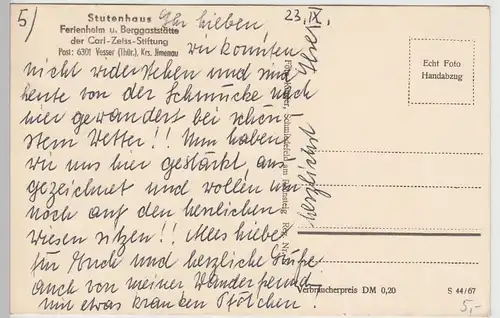 5/
Stutenhaus
Ferienheim u. Berggaststätte
der Carl-Zeiss-Stiftung
Post: 6301 Vesser (Thür.), Krs. Jlmenau
Ihr Lieben,
23. IX.
wir konnten
nicht widerstehen und sind
heute von der Schmücke nach
hier gewandert bei schön-
stem Wetter!! Nun haben
wir uns hier gestärkt, aus-
gezeichnet und wollen nur
noch auf den herrlichen
Wiesen sitzen!! Alles Liebe
für Ende und herzliche Grüße
auch von meiner Wanderfreundin
mit etwas kranken Pfötchen!
herzlichst
Schmiedefeld am Rennsteig
Reg. Nr.
Echt Foto
Handabzug
Verbraucherpreis DM 0,20
S 44/67
5,-